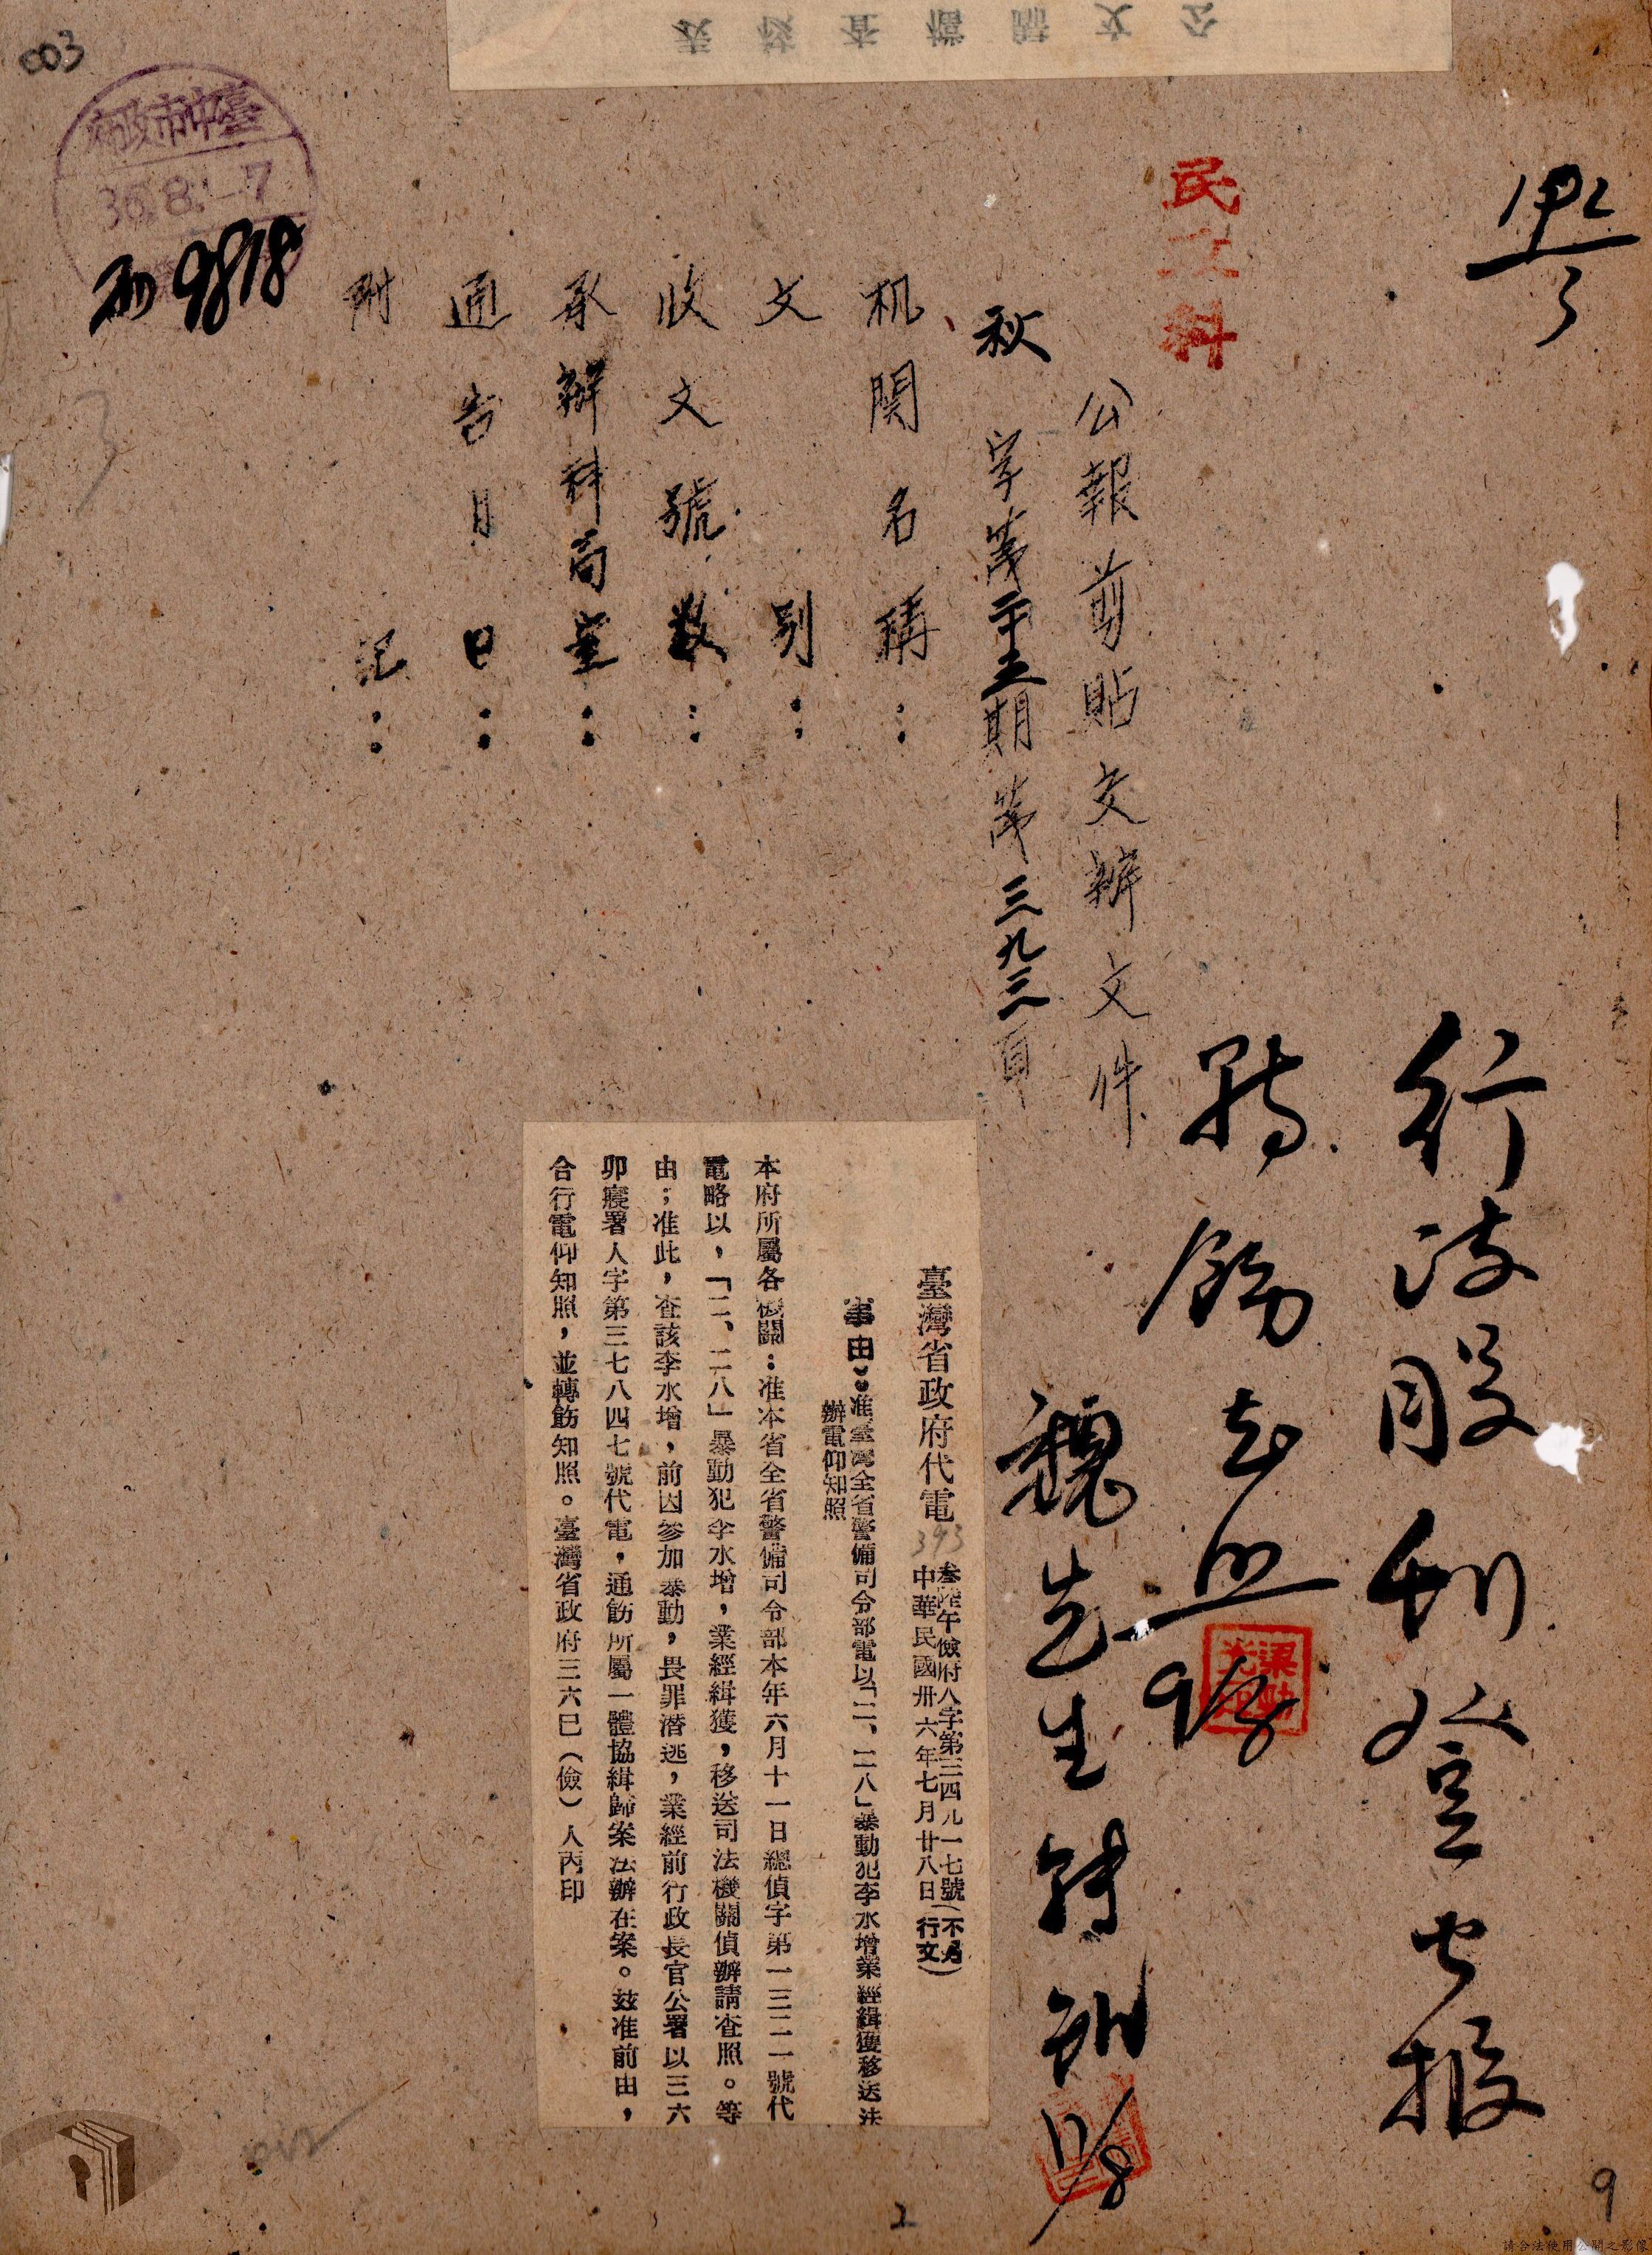 公文歸檔查核表
003
臺中市政府
36.8.-7
9818
民政科
公報剪貼交辦文件
秋 字第二十五期第三九三頁
机関名稱：
文別：
收文號數：
承辦科局室：
通告月日：
附記：
臺灣省政府代電
393
叁陸午儉府人字第三四九一七號
中華民國卅六年七月廿八日
（不另行文）
事由：准臺灣全省警備司令部電以「二、二八」暴動犯李水增業經緝獲移送法
辦電仰知照
本府所屬各機關：准本省全省警備司令部本年六月十一日總偵字第一三二一號代
電略以，「二、二八」暴動犯李水增，業經緝獲，移送司法機關偵辦請查照。等
由；准此，查該李水增，前因參加暴動，畏罪潛逃，業經前行政長官公署以三六
卯寢署人字第三七八四七號代電，通飭所屬一體協緝歸案法辦在案。茲准前由，
合行電仰知照，並轉飭知照。臺灣省政府三六巳（儉）人丙印
行政股刊登公報
轉飭知照
9/8
魏先生
11/8
2
9
請合法使用公開之影像